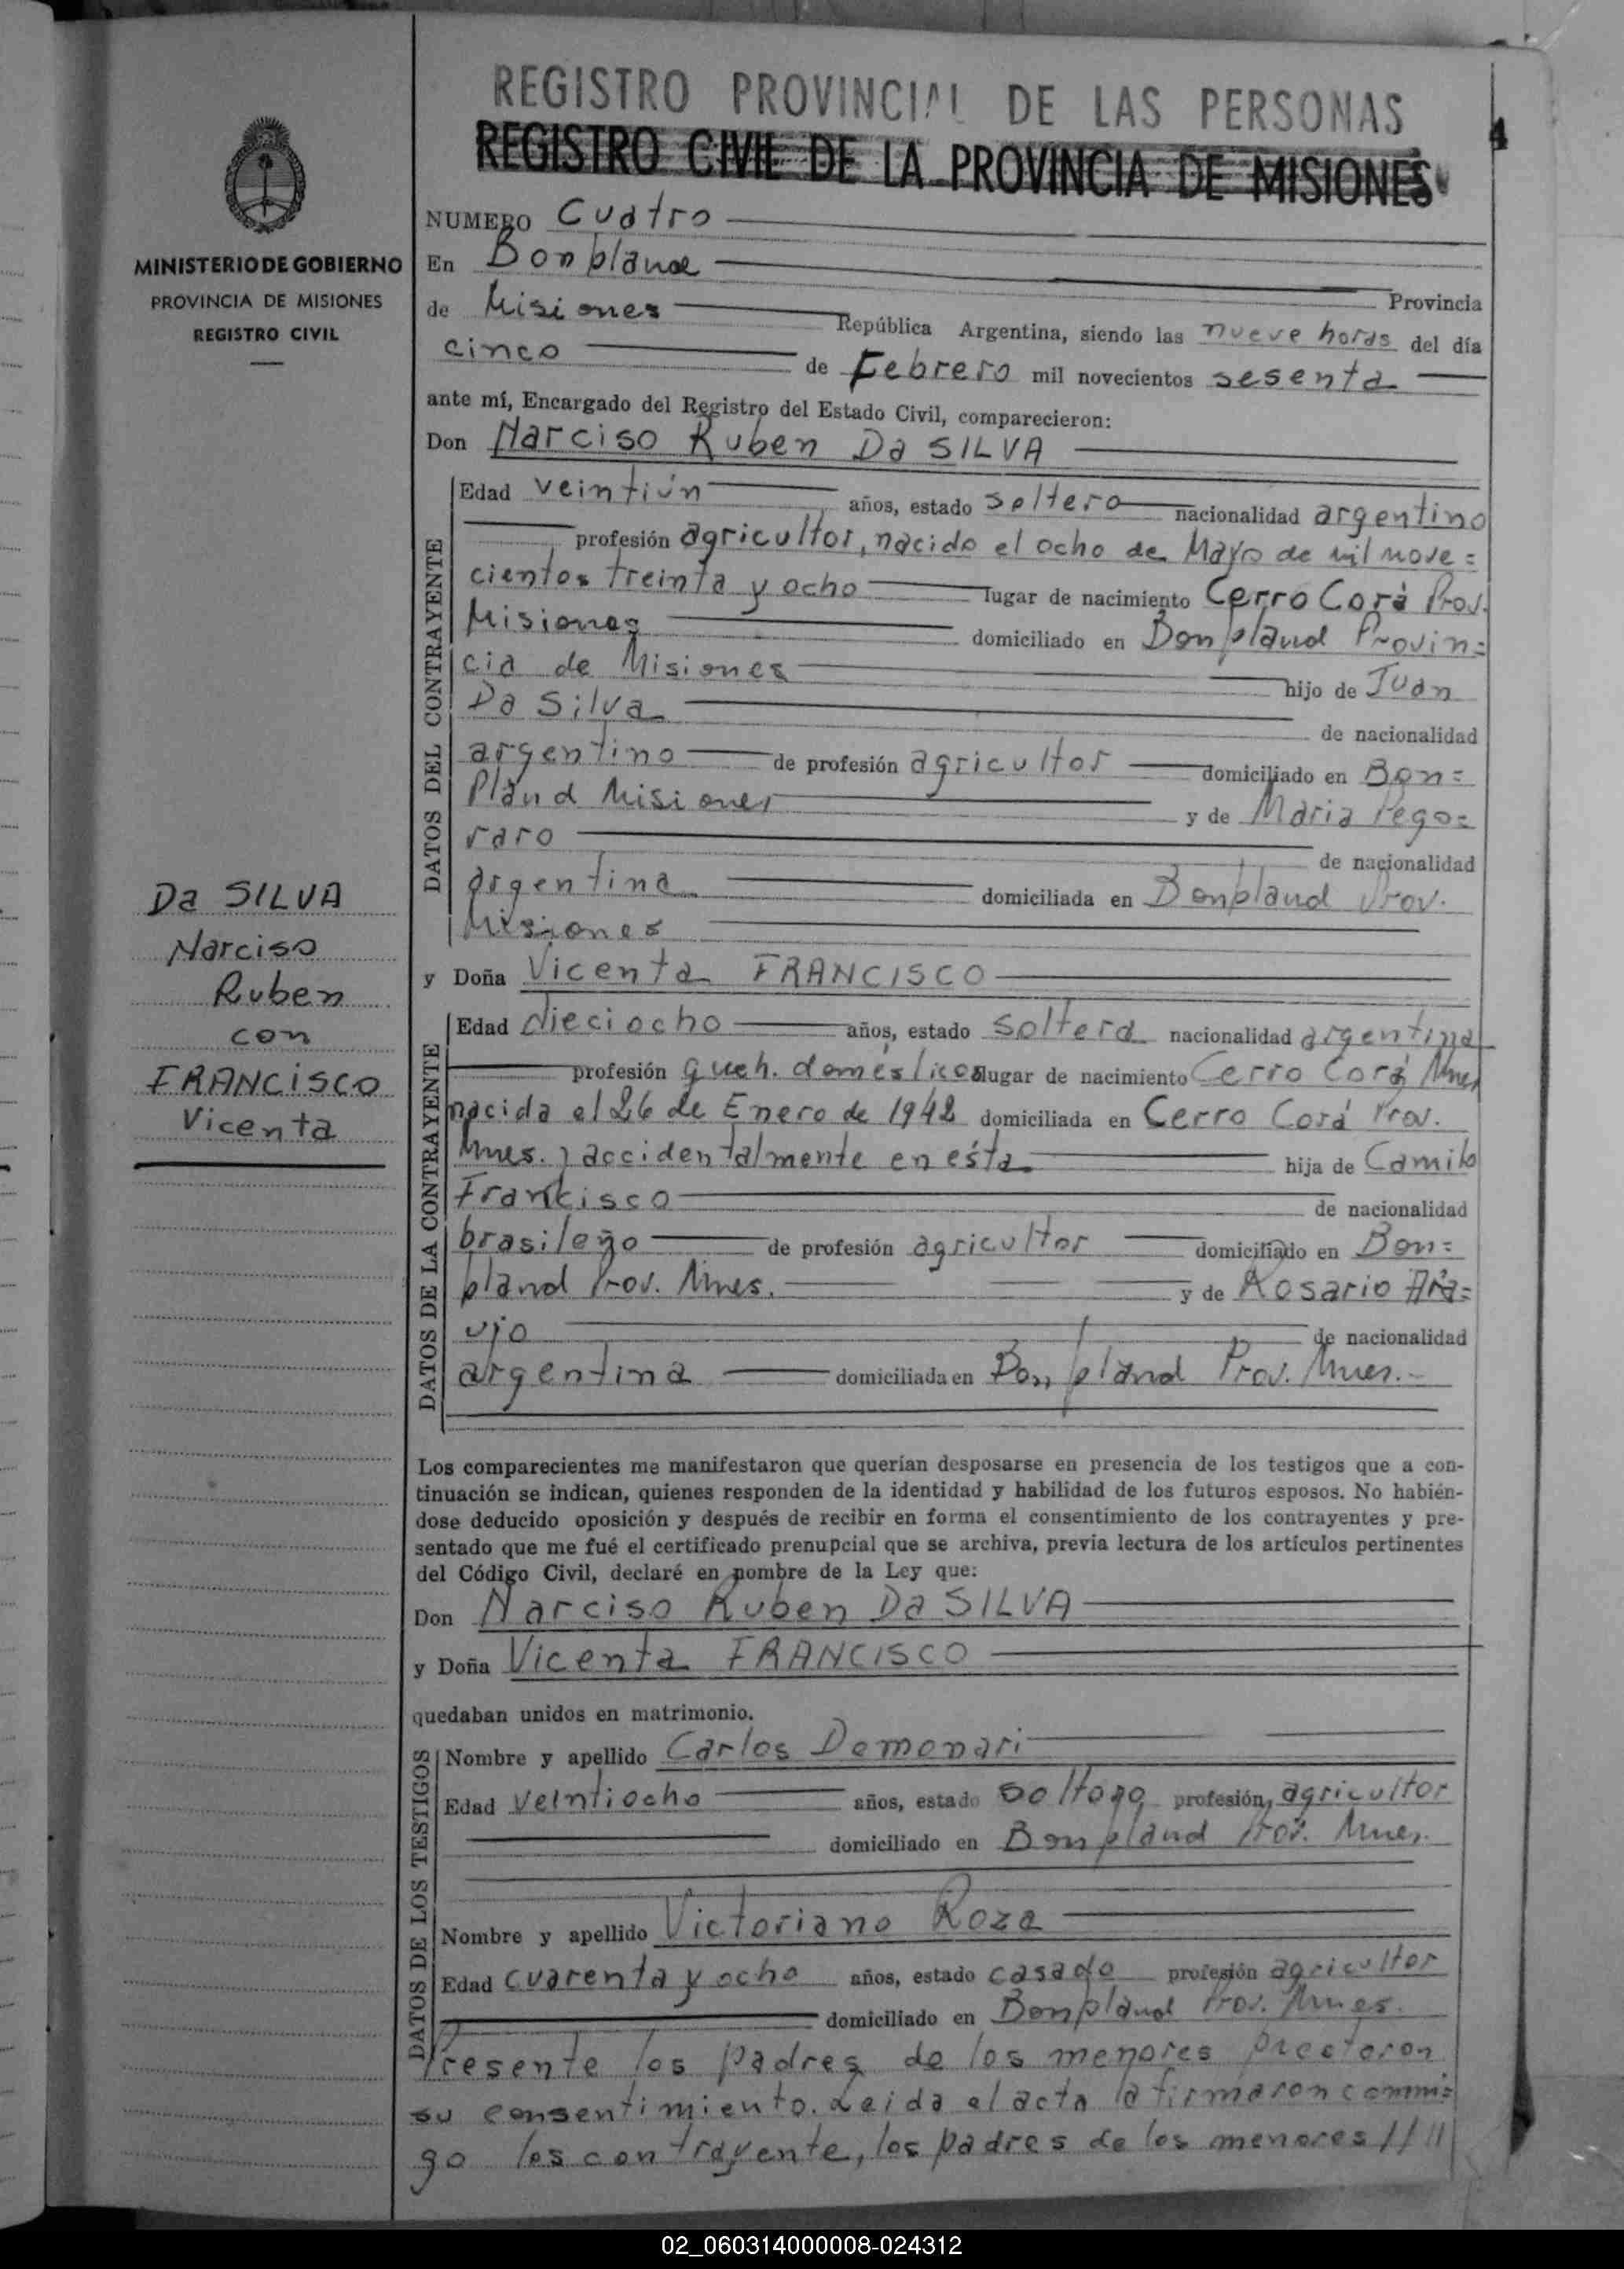 REGISTRO PROVINCIAL DE LAS PERSONAS
REGISTRO CIVIL DE LA PROVINCIA DE MISIONES
4
MINISTERIO DE GOBIERNO
PROVINCIA DE MISIONES
REGISTRO CIVIL
Da SILVA
Narciso
Ruben
con
FRANCISCO
Vicenta
NUMERO Cuatro
En Bonpland
Provincia
de Misiones República Argentina, siendo las nueve horas del día
cinco de Febrero mil novecientos sesenta
ante mí, Encargado del Registro del Estado Civil, comparecieron:
Don Narciso Ruben Da SILVA
DATOS DEL CONTRAYENTE
Edad veintiún años, estado soltero nacionalidad argentino
profesión agricultor, nacido el ocho de Mayo de mil nove=
cientos treinta y ocho lugar de nacimiento Cerro Corá Prov.
Misiones domiciliado en Bonpland Provin=
cia de Misiones hijo de Juan
Da Silva de nacionalidad
argentino de profesión agricultor domiciliado en Bon=
pland Misiones y de Maria Pego=
raro de nacionalidad
argentina domiciliada en Bonpland Prov.
Misiones
y Doña Vicenta FRANCISCO
DATOS DE LA CONTRAYENTE
Edad dieciocho años, estado soltera nacionalidad argentina
profesión queh. domésticos lugar de nacimiento Cerro Corá Mnes
nacida el 26 de Enero de 1942 domiciliada en Cerro Corá Prov.
Mnes. y accidentalmente en ésta hija de Camilo
Francisco de nacionalidad
brasileño de profesión agricultor domiciliado en Bon=
pland Prov. Mnes. y de Rosario Ara=
ujo de nacionalidad
argentina domiciliada en Bonpland Prov. Mnes.-
Los comparecientes me manifestaron que querían desposarse en presencia de los testigos que a con-
tinuación se indican, quienes responden de la identidad y habilidad de los futuros esposos. No habién-
dose deducido oposición y después de recibir en forma el consentimiento de los contrayentes y pre-
sentado que me fué el certificado prenupcial que se archiva, previa lectura de los artículos pertinentes
del Código Civil, declaré en nombre de la Ley que:
Don Narciso Ruben Da SILVA
y Doña Vicenta FRANCISCO
quedaban unidos en matrimonio.
DATOS DE LOS TESTIGOS
Nombre y apellido Carlos Demonari
Edad veintiocho años, estado soltero profesión agricultor
domiciliado en Bonpland Prov. Mnes.
Nombre y apellido Victoriano Roza
Edad cuarenta y ocho años, estado casado profesión agricultor
domiciliado en Bonpland Prov. Mnes.
Presente los padres de los menores prestaron
su consentimiento. Leida el acta la firmaron conmi=
go los contrayente, los padres de los menores ////
02_060314000008-024312